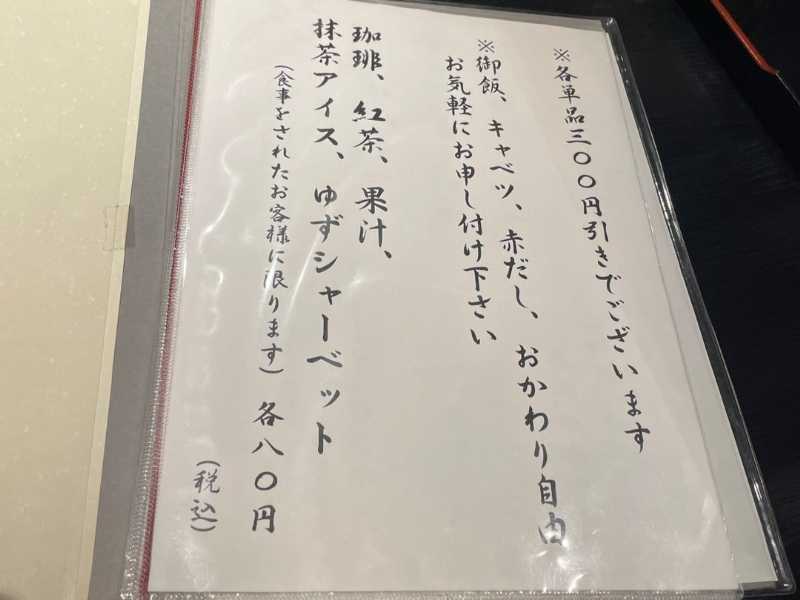 ※各単品三〇〇円引きでございます
※御飯、キャベツ、赤だし、おかわり自由
お気軽にお申し付け下さい
珈琲、紅茶、果汁、
抹茶アイス、ゆずシャーベット
(食事をされたお客様に限ります) 各八〇円
(税込)